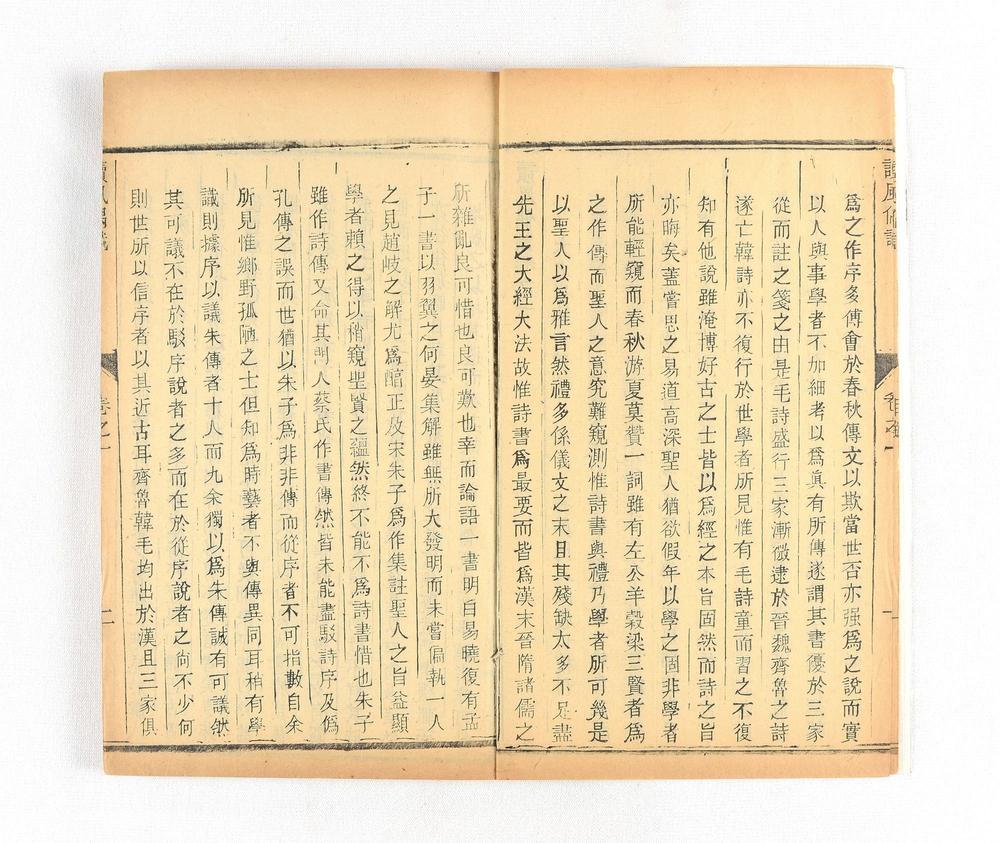 讀風偶識
爲之作序多傅會於春秋傳文以欺當世否亦强爲之說而實
以人與事學者不加細考以爲眞有所傳遂謂其書優於三家
從而註之箋之由是毛詩盛行三家漸微逮於晉魏齊魯之詩
遂亡韓詩亦不復行於世學者所見惟有毛詩童而習之不復
知有他說雖淹博好古之士皆以爲經之本旨固然而詩之旨
亦晦矣蓋嘗思之易道高深聖人猶欲假年以學之固非學者
所能輕窺而春秋游夏莫贊一詞雖有左公羊穀梁三賢者爲
之作傳而聖人之意究難窺測惟詩書與禮乃學者所可幾是
以聖人以爲雅言然禮多係儀文之末且其殘缺太多不足盡
先王之大經大法故惟詩書爲最要而皆爲漢末晉隋諸儒之
所雜亂良可惜也良可歎也幸而論語一書明白易曉復有孟
子一書以羽翼之何晏集解雖無所大發明而未嘗偏執一人
之見趙岐之解尤爲醇正及宋朱子爲作集註聖人之旨益顯
學者賴之得以稍窺聖賢之蘊然終不能不爲詩書惜也朱子
雖作詩傳又命其門人蔡氏作書傳然皆未能盡駁詩序及僞
孔傳之誤而世猶以朱子爲非非傳而從序者不可指數自余
所見惟鄉野孤陋之士但知爲時藝者不與傳異同耳稍有學
識則據序以議朱傳者十人而九余獨以爲朱傳誠有可議然
其可議不在於駁序說者之多而在於從序說者之尙不少何
則世所以信序者以其近古耳齊魯韓毛均出於漢且三家俱
讀風偶識
卷之一